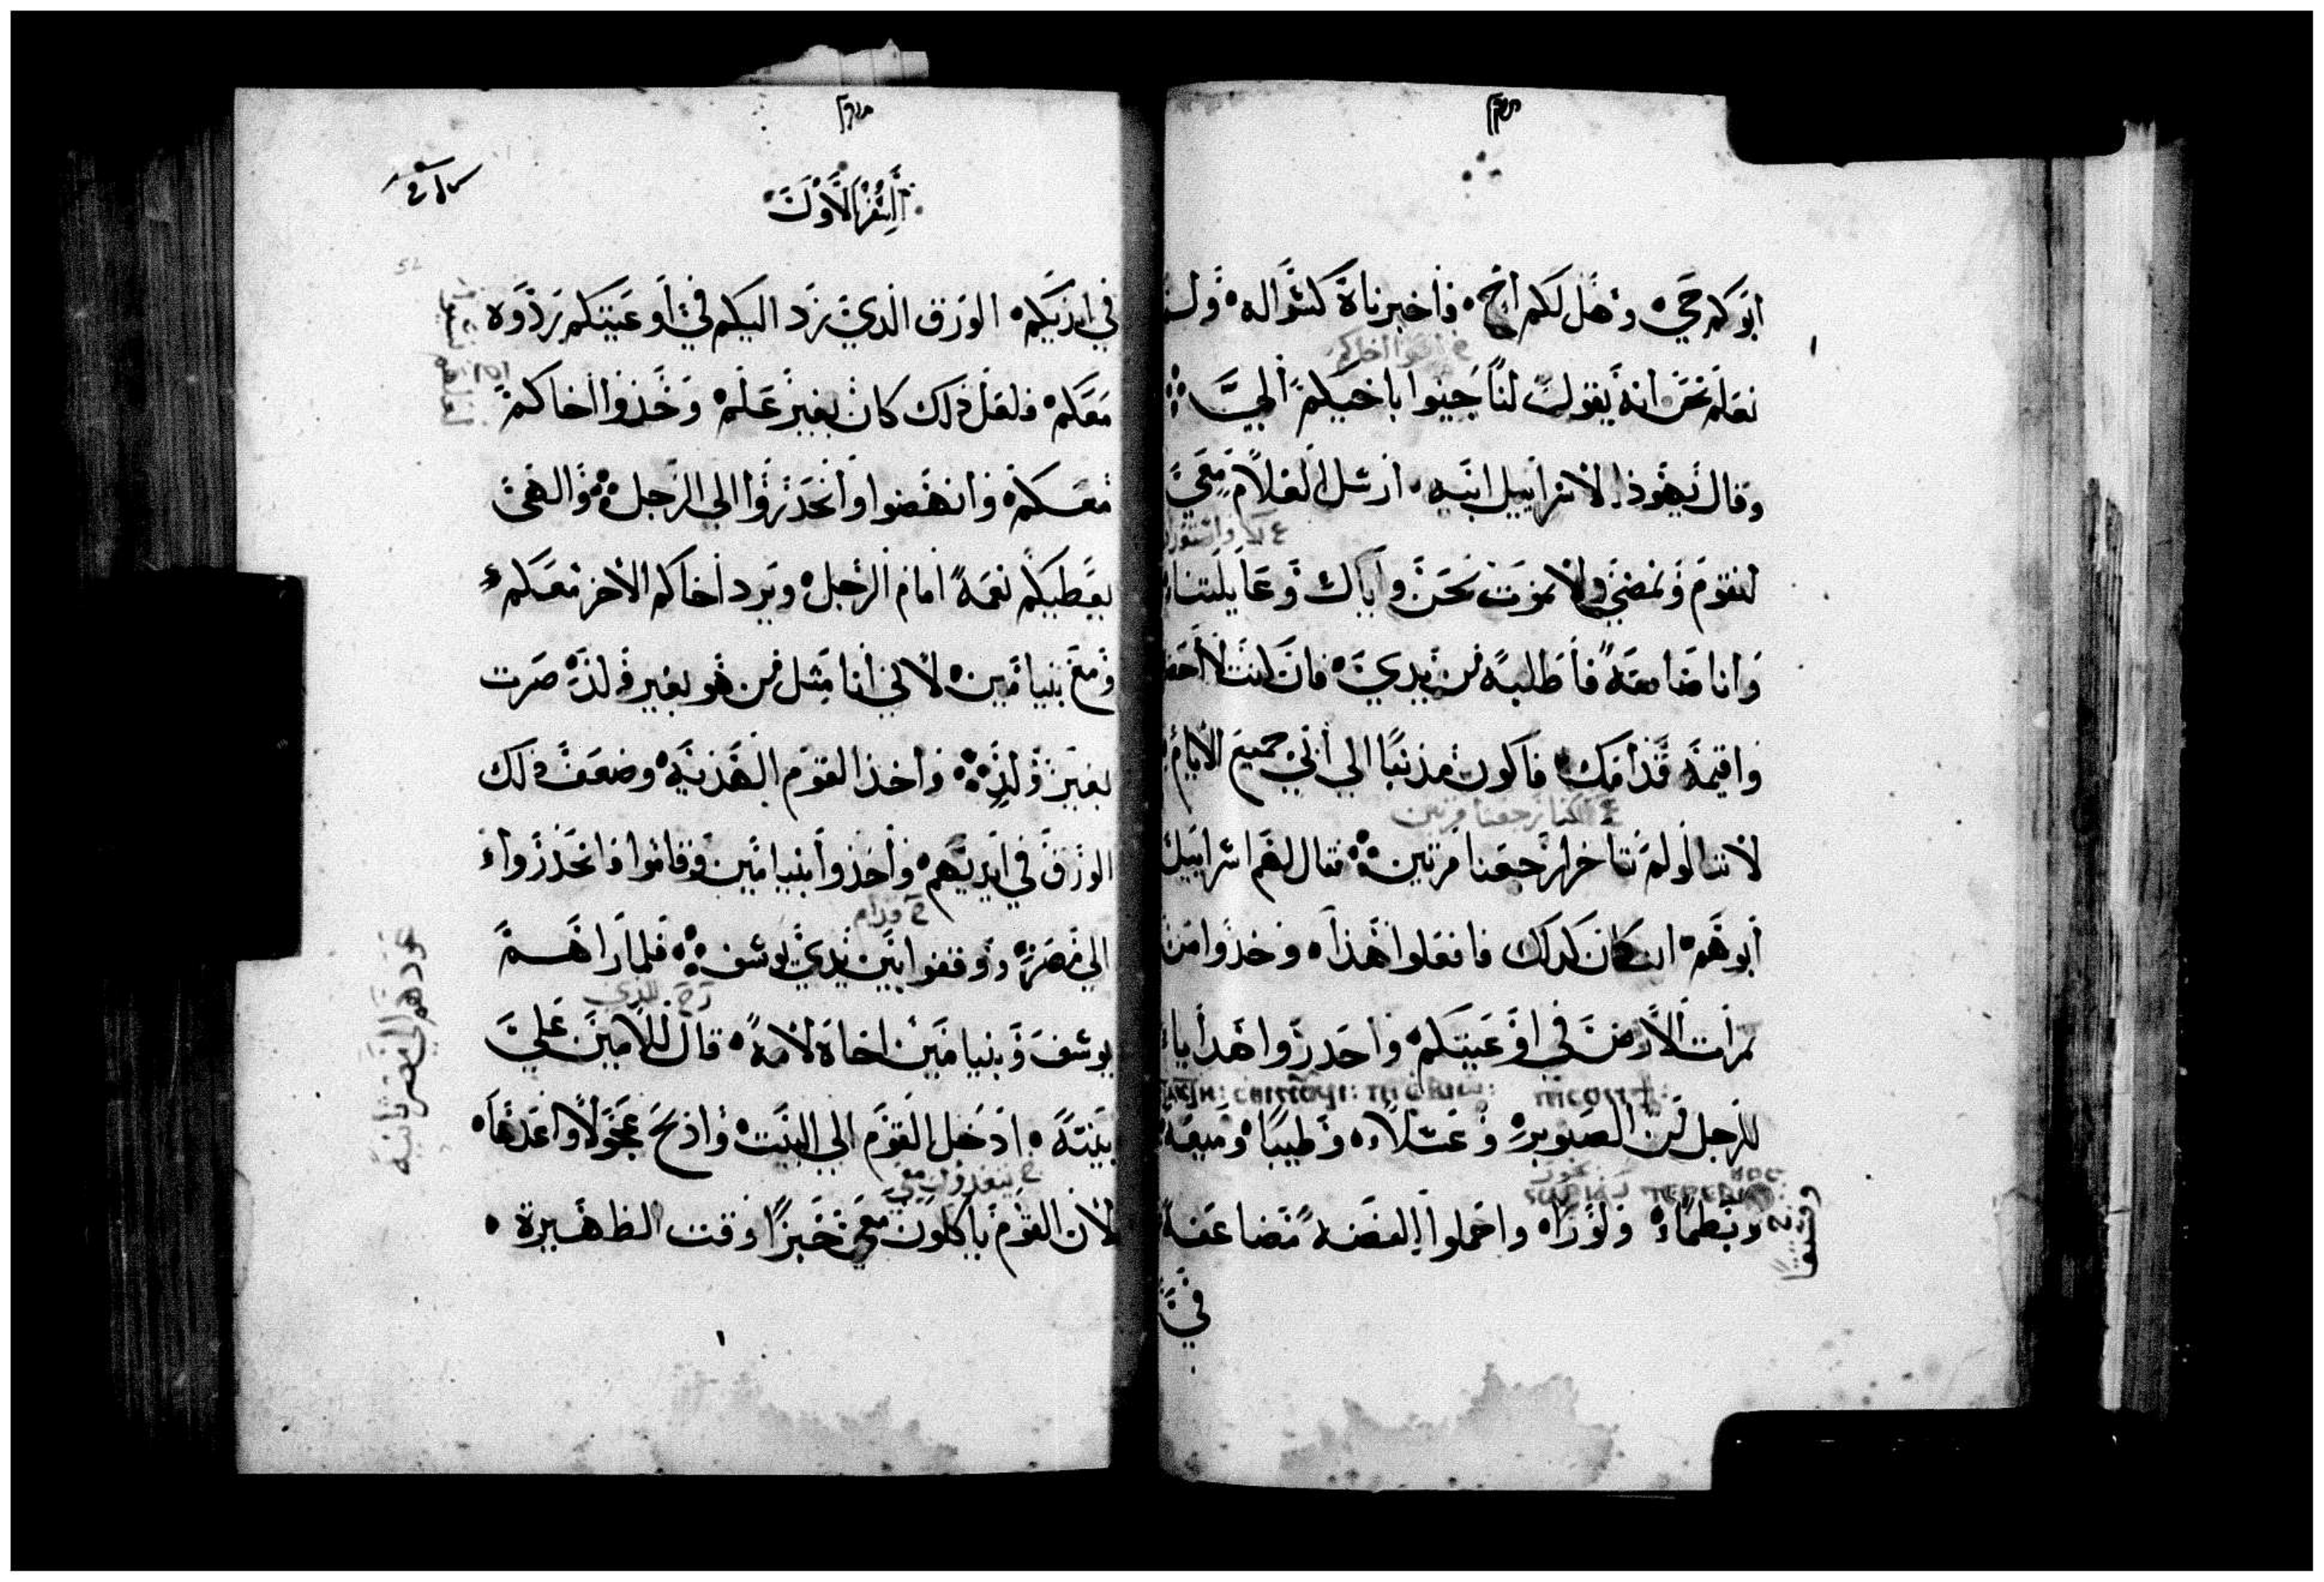 ابوكم حي وهل لكم اخ فاخبرناه كسواله ولم
نعلم نحن انه يقول لنا جيبوا باخيكم الي
وقال يهوذا لاسراييل ابيه ارسل الغلام معي
لنقوم ونمضي ولا نموت نحن واياك وعايلتنا
وانا ضامنه فاطلبه من يدي فان كنت لا احضره
واقيمه قدامك فاكون مذنبا الي ابي جميع الايام
لاننا لو لم نتاخر لرجعنا مرتين فقال لهم اسراييل
ابوهم ان كان كذلك فافعلوا هذا وخذوا من
ثمرات الارض في اوعيتكم واحدروا هدايا
للرجل من الصنوبر وعسلا وطيبا وميعه
وبطما ولوزا واحملوا الفضه مضاعفه
في
السفر الاول
في ايديكم الورق الذي رد اليكم في اوعيتكم ردوه
معكم فلعل ذلك كان بغير علم وخذوا اخاكم
معكم وانهضوا وانحدروا الي الرجل والهي
يعطيكم نعمة امام الرجل ويرد اخاكم الاخر معكم
ومع بنيامين لاني انا مثل من هو بغير ولد صرت
بغير ولد واخذ القوم الهديه وضعف ذلك
الورق في ايديهم واخذوا بنيامين وقاموا وانحدروا
الي مصر ووقفوا بين يدي يوسف فلما راهم
يوسف وبنيامين اخاه لامه قال للامين علي
بيته ادخل القوم الي البيت واذبح عجولا واعدها
لان القوم ياكلون معي خبزا وقت الظهيرة
عودهم الي مصر ثانية